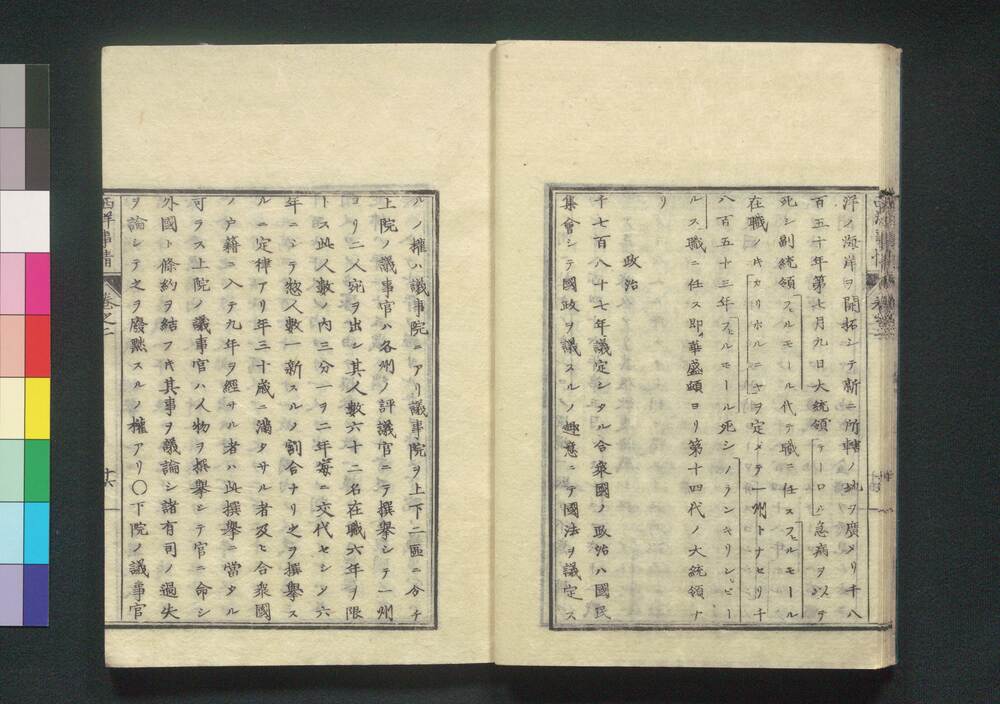 洋ノ海岸ヲ開拓シテ新ニ所轄ノ地ヲ廣メリ千八
百五十年第七月九日大統領テーロル急病ヲ以テ
死シ副統領フェルモール代テ職ニ任スフェルモール
在職ノ時カリホルニヤヲ定メテ一州トナセリ千
八百五十三年フェルモール死シフランキリンピー
ルス職ニ任ス即華盛頓ヨリ第十四代ノ大統領ナ
リ
政治
千七百八十七年議定シタル合衆國ノ政治ハ國民
集會シテ國政ヲ議スルノ趣意ニテ國法ヲ議定ス
ルノ權ハ議事院ニアリ議事院ヲ上下二區ニ分チ
上院ノ議事官ハ各州ノ評議官ニテ撰擧シテ一州
ヨリ二人宛ヲ出シ其人數六十二名在職六年ヲ限
トス此人數ノ内三分一ヲ二年每ニ交代セシメ六
年ニシテ惣人數一新スルノ割合ナリ之ヲ撰擧ス
ルニ定律アリ年三十歳ニ滿タサル者及ヒ合衆國
ノ戸籍ニ入テ九年ヲ經サル者ハ此撰擧ニ當タル
可ラス上院ノ議事官ハ人物ヲ撰擧シテ官ニ命シ
外國ト條約ヲ結フ時其事ヲ議論シ諸有司ノ過失
ヲ論シテ之ヲ廢黙スルノ權アリ〇下院ノ議事官
西洋事情 卷之二